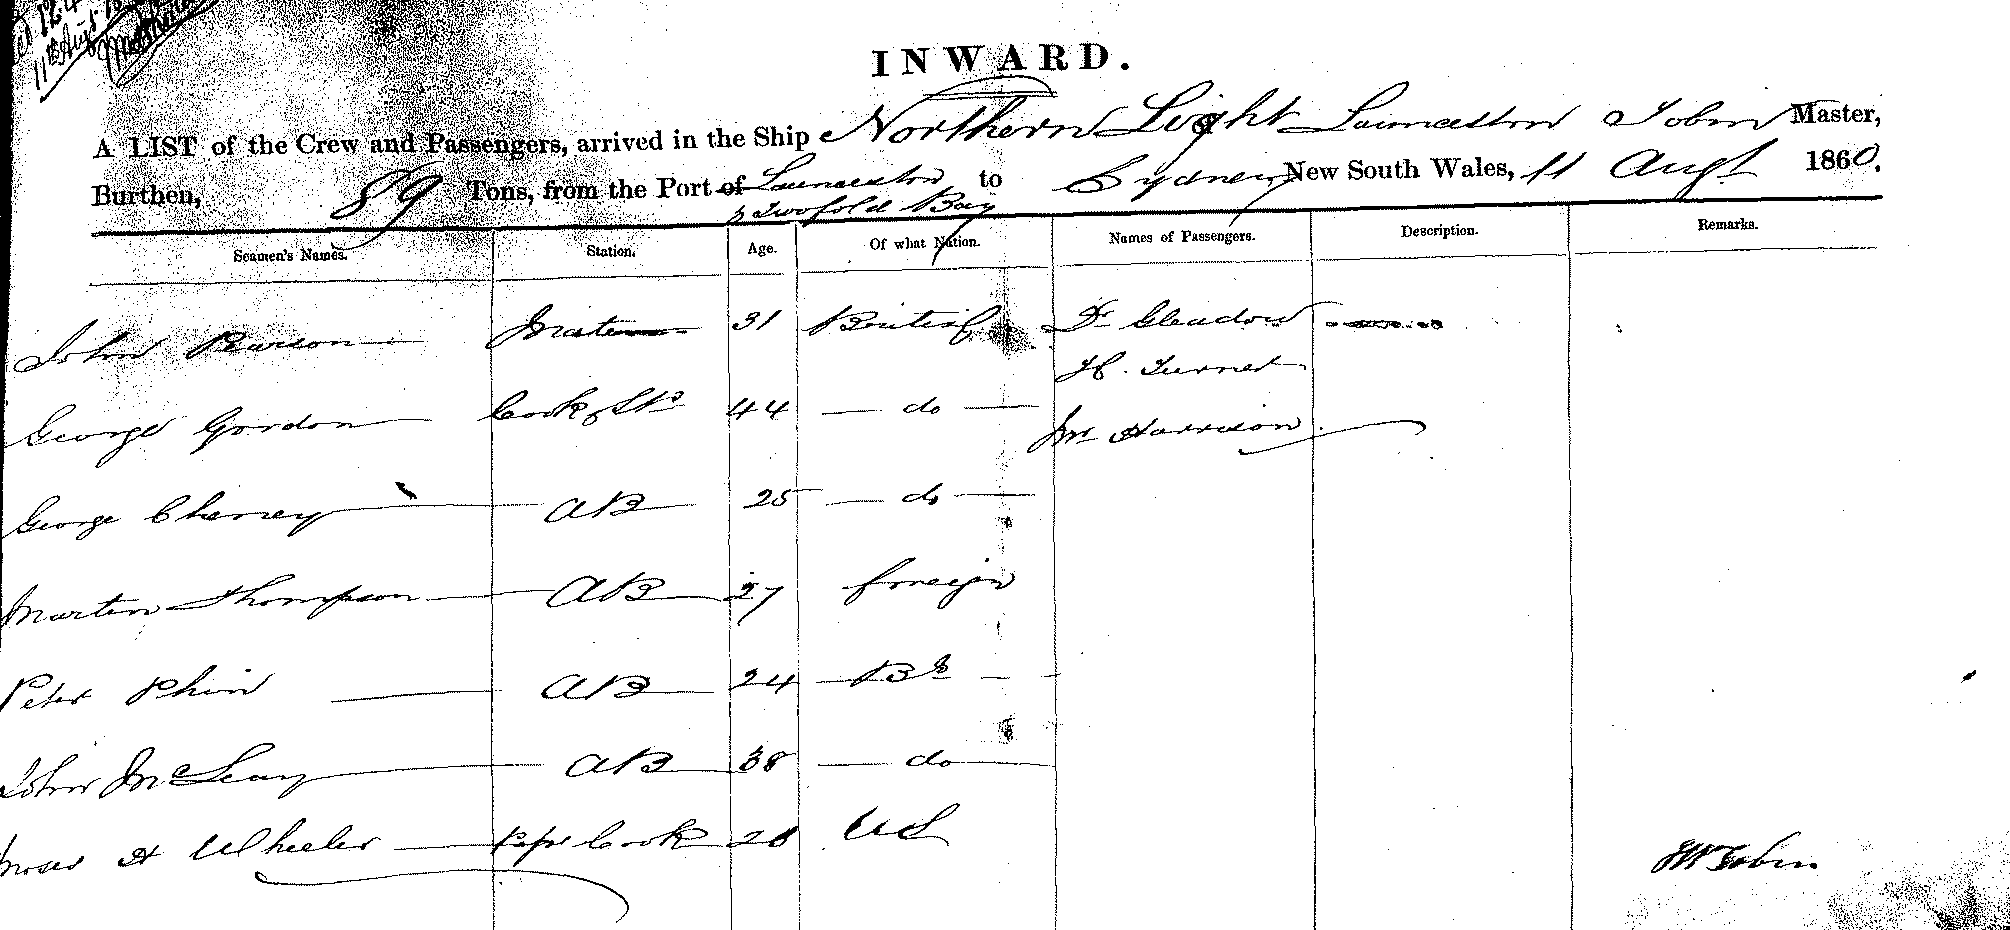 11th Aug
INWARD.
A LIST of the Crew and Passengers, arrived in the Ship Northern Light Launceston Tobin Master,
Burthen, 89 Tons, from the Port of Launceston to Sydney New South Wales, 11 Augt 1860.
& Twofold Bay
Seamen's Names. Station. Age. Of what Nation. Names of Passengers. Description. Remarks.
John Pearson Mate 31 British Dr Gleadow
H. Turner
George Gordon Cook & Std 44 do Mr Harrison
George Cheney AB 25 do
Martin Thompson AB 27 foreign
Peter Phin AB 24 Bh
John McLeay AB 38 do
Moses H Wheeler Cook US
JW Tobin